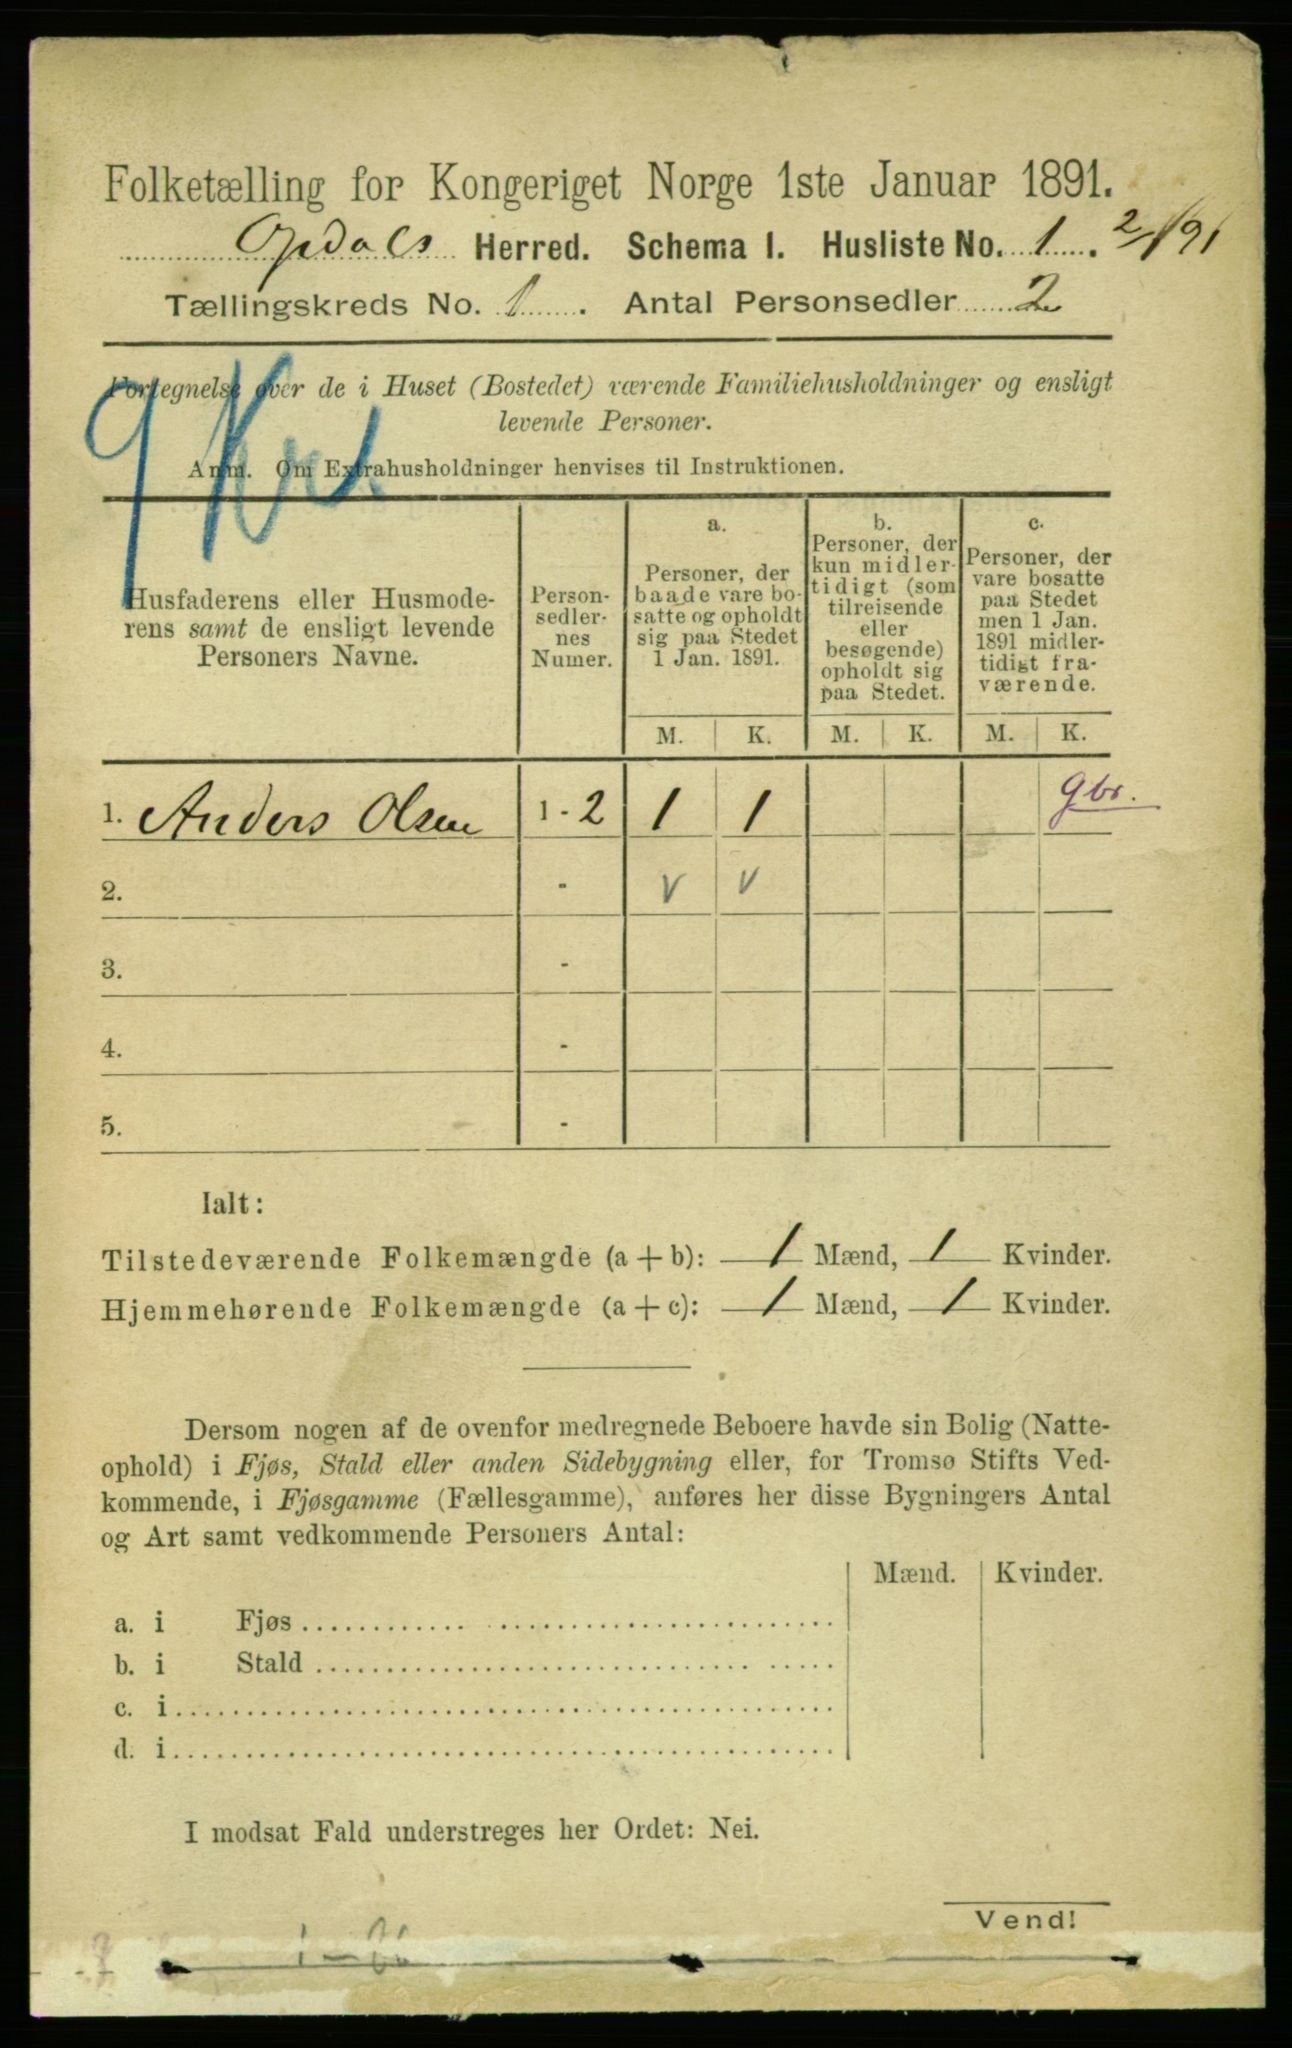 Folketælling for Kongeriget Norge 1ste Januar 1891.
Opdals Herred. Schema I. Husliste No. 1. 2/1 91
Tællingskreds No. 1. Antal Personsedler 2
Fortegnelse over de i Huset (Bostedet) værende Familiehusholdninger og ensligt
levende Personer.
Anm. Om Extrahusholdninger henvises til Instruktionen.
Husfaderens eller Husmode-
rens samt de ensligt levende
Personers Navne.
Person-
sedler-
nes
Numer.
a.
Personer, der
baade vare bo-
satte og opholdt
sig paa Stedet
1 Jan. 1891.
b.
Personer, der
kun midler-
tidigt (som
tilreisende
eller
besøgende)
opholdt sig
paa Stedet.
c.
Personer, der
vare bosatte
paa Stedet
men 1 Jan.
1891 midler-
tidigt fra-
værende.
M. K. M. K. M. K.
1. Anders Olsen 1 - 2 1 1 gbr.
2. - V V
3. -
4. -
5. -
Ialt:
Tilstedeværende Folkemængde (a + b): 1 Mænd, 1 Kvinder.
Hjemmehørende Folkemængde (a + c): 1 Mænd, 1 Kvinder.
Dersom nogen af de ovenfor medregnede Beboere havde sin Bolig (Natte-
ophold) i Fjøs, Stald eller anden Sidebygning eller, for Tromsø Stifts Ved-
kommende, i Fjøsgamme (Fællesgamme), anføres her disse Bygningers Antal
og Art samt vedkommende Personers Antal:
Mænd. Kvinder.
a. i Fjøs
b. i Stald
c. i
d. i
I modsat Fald understreges her Ordet: Nei.
Vend!